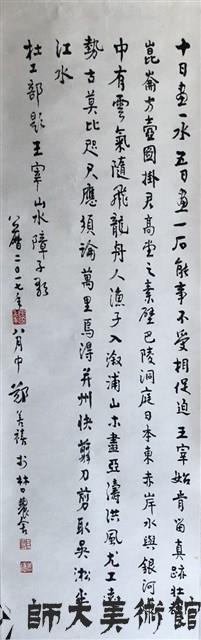 十日畫一水五日畫一石能事不受相促迫王宰始肯留真跡壯哉
崑崙方壺圖掛君高堂之素壁巴陵洞庭日本東赤岸水與銀河通
中有雲氣隨飛龍舟人漁子入浦漵山木盡亞濤洪風尤工遠
勢古莫比咫尺應須論萬里焉得并州快剪刀剪取吳淞半
江水
杜工部題王宰山水障子歌
公曆二〇一七年八月中鄭善禧於林口農舍
師大美術館